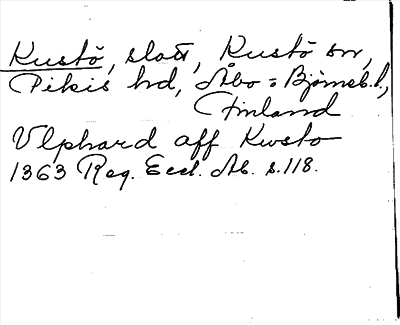 Kustö, slott, Kustö sn,
Pikis hd, Åbo = Björneb. l.,
Finland
Vlphard aff Kwsto
1363 Reg. Eccl. Ab. s. 118.